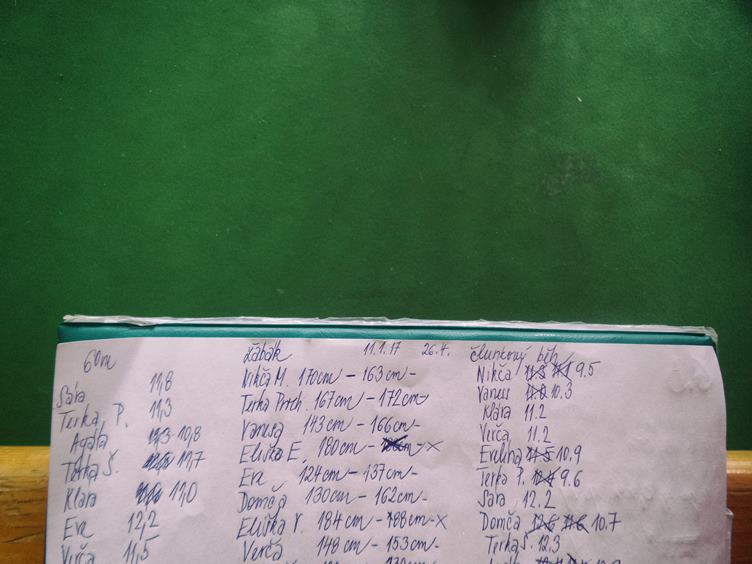 60m
Sára 11,8
Terka P. 11,3
Agáta 11,3 10,8
Terka Š. 11,7
Klára 11,0
Eva 12,2
Verča 11,5
žabák 11.1.17 26.4.
Nikča M. 170cm - 163cm-
Terka Proch. 167cm - 172cm-
Vanesa 143cm - 166cm-
Eliška E. 180cm - x
Eva 124cm - 137cm-
Domča 130cm - 162cm-
Eliška V. 184cm - 188cm-x
Verča 148cm - 153cm-
člunkový běh
Nikča 11.3 11.1 9.5
Vaness 11.0 10.3
Klára 11.2
Verča 11.2
Evelína 11.5 10.9
Terka P. 12.4 9.6
Sára 12.2
Domča 12.6 11.6 10.7
Terka Š. 12.3